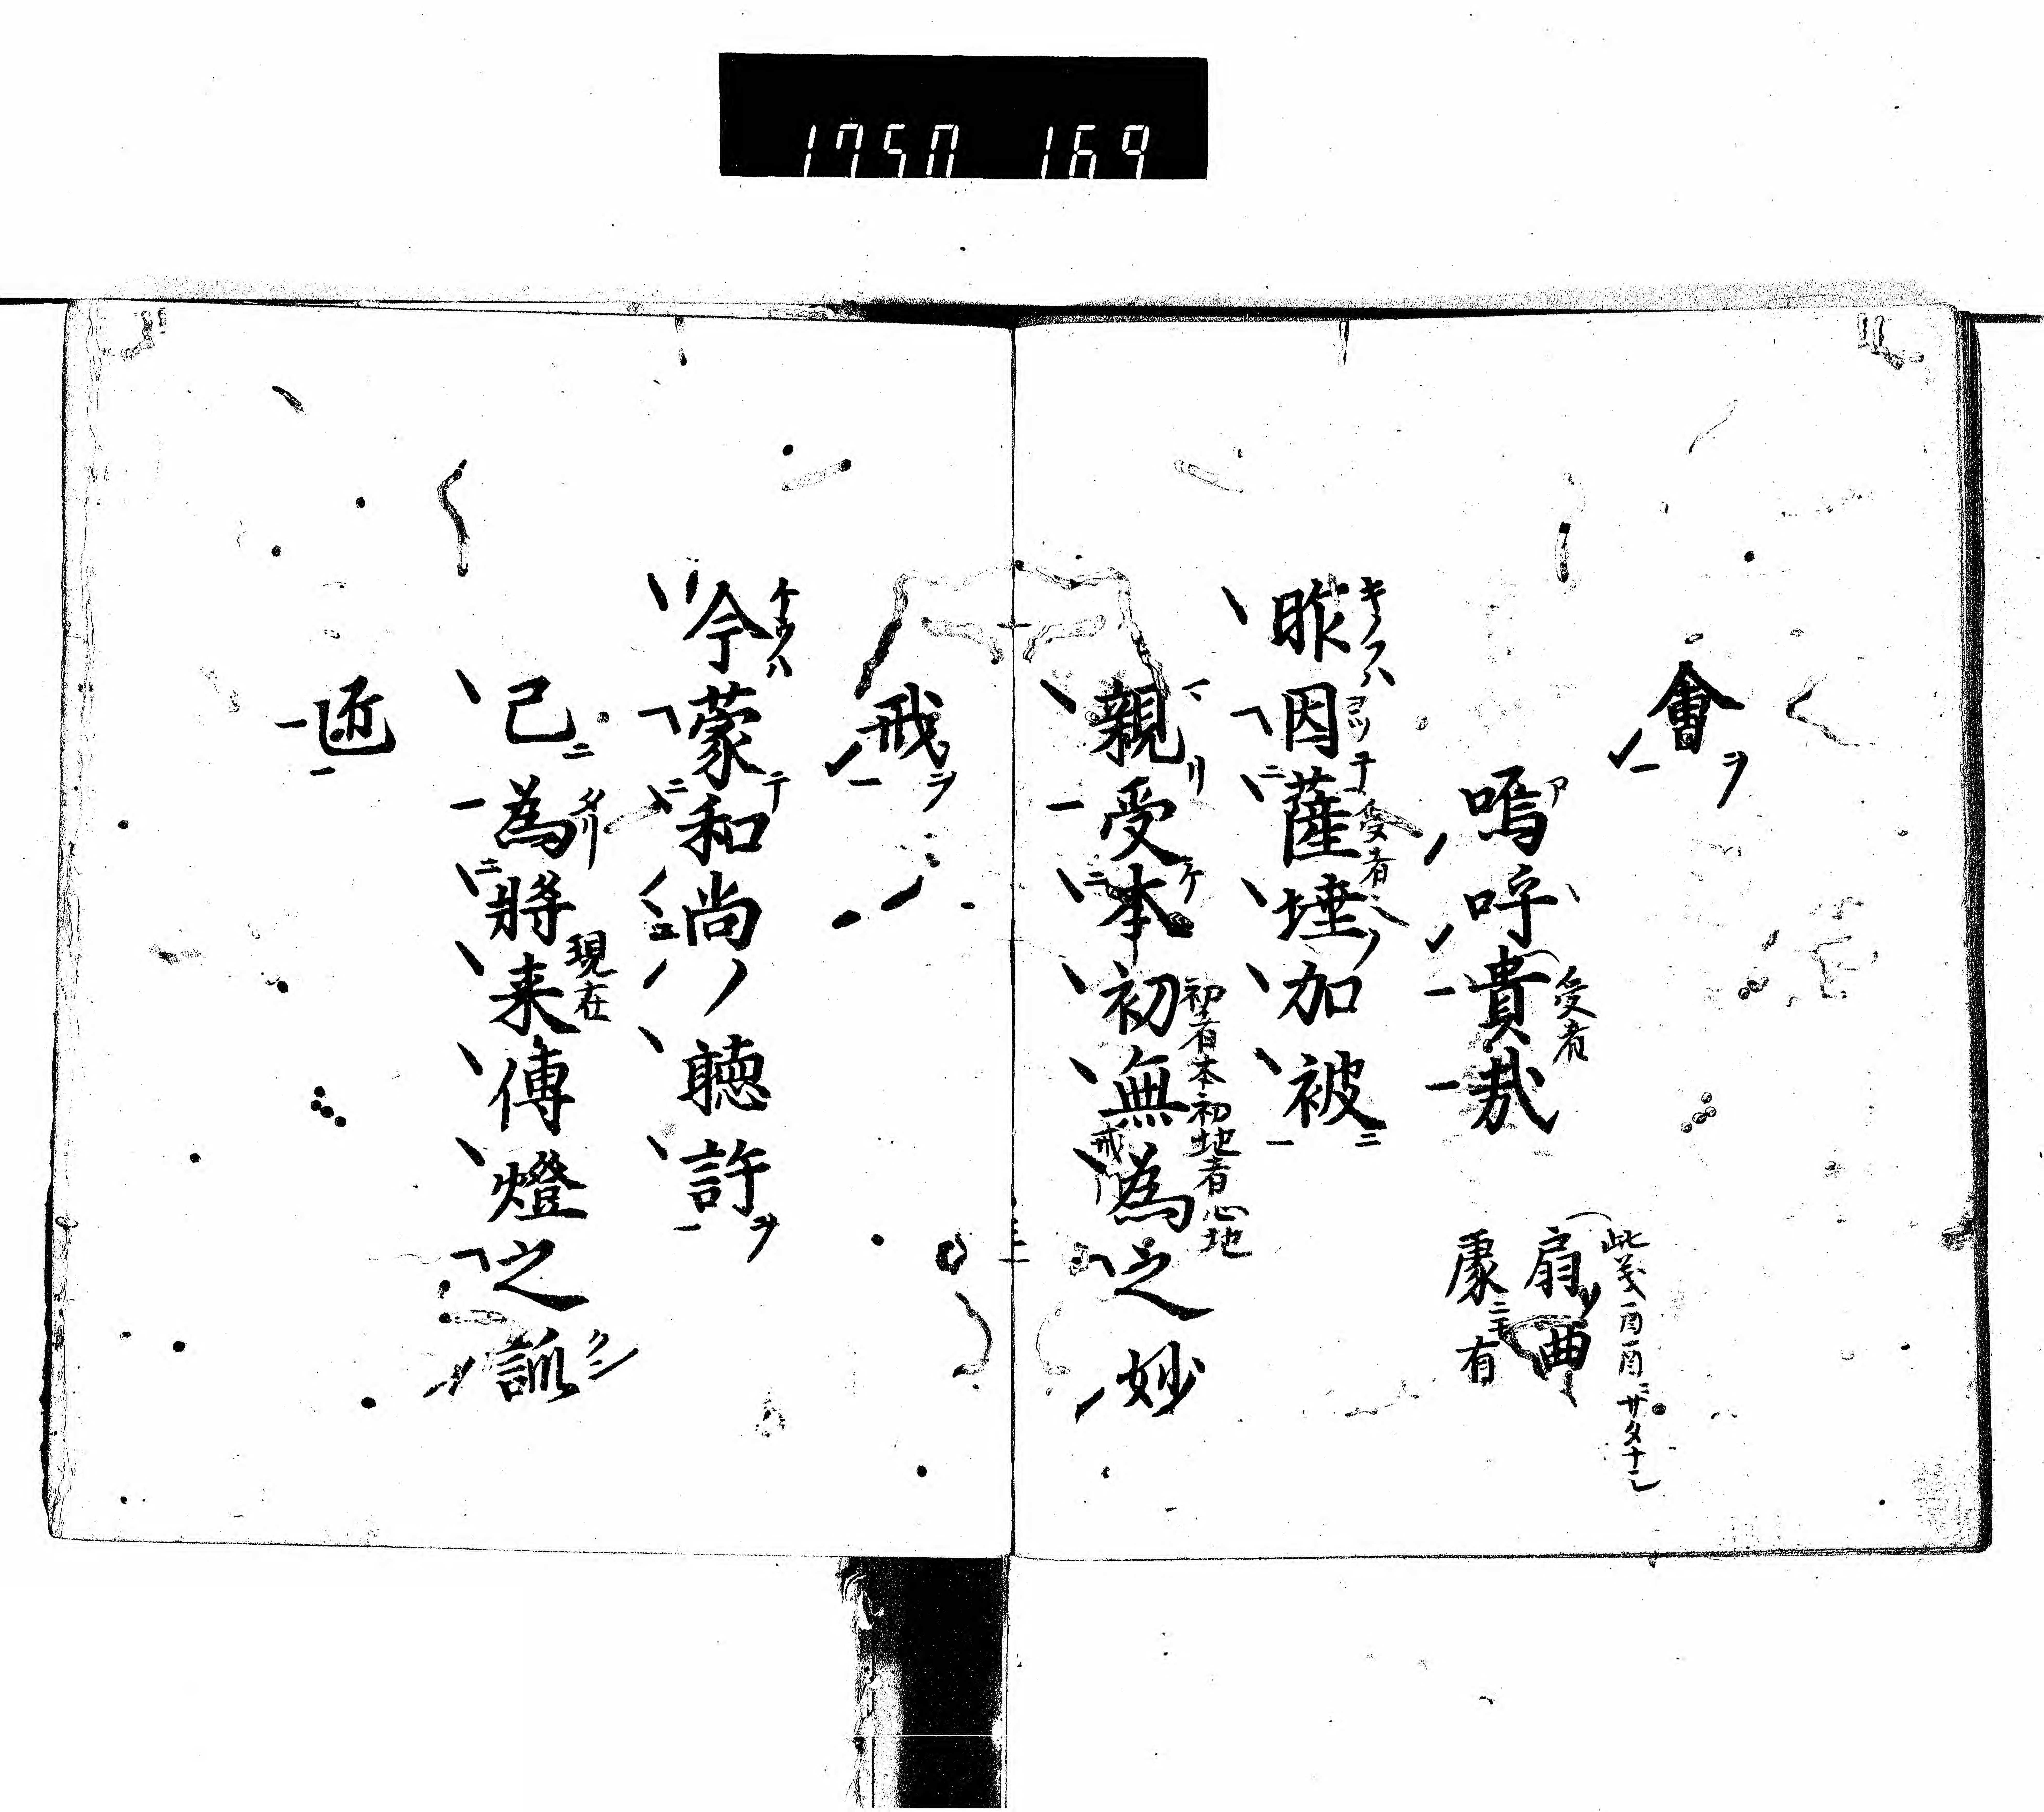 1750 169
會ヲ
嗚呼貴哉
受者
此義一酉一酉ニサタナシ
扇
處ニモ有
昨因薩埵ノ加被
キノフハ
ヨツテ
受者
親受本初無為之妙
初有本初地者心地
戒
戒ヲ
今蒙和尚ノ聴許ヲ
ケフハ
己為將来傳燈之
タリ
現在
匠